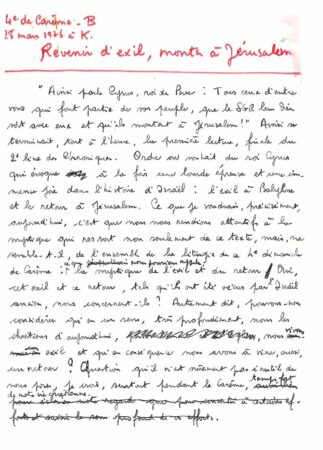 4e de Carême - B
28 mars 1976 à K.
Revenir d'exil, monter à Jérusalem
"Ainsi parle Cyrus, roi de Perse : Tous ceux d'entre
vous qui font partie de son peuple, que le SGR leur Dieu
soit avec eux et qu'ils montent à Jérusalem !" Ainsi se
terminait, tout à l'heure, la première lecture, finale du
2e livre des Chroniques. Ordre ou souhait du roi Cyrus
qui évoque à la fois une lourde épreuve et une im-
mense joie dans l'histoire d'Israël : l'exil à Babylone
et le retour à Jérusalem. Ce que je voudrais, précisément,
aujourd'hui, c'est que nous nous rendions attentifs à la
mystique qui ressort non seulement de ce texte, mais, me
semble-t-il, de l'ensemble de la liturgie de ce 4e dimanche
de Carême : la mystique de l'exil et du retour. Oui,
cet exil et ce retour, tels qu'ils ont été vécus par Israël
ancien, nous concernent-ils ? Autrement dit, pouvons-nous
considérer qu'en un sens, très profondément, nous les
chrétiens d'aujourd'hui, nous vivons
exil et qu'en conséquence nous avons à vivre, aussi,
un retour ? Question qu'il n'est sûrement pas inutile de
nous poser, je crois, surtout pendant le Carême, temps fort
de notre vie chrétienne.
pour éclairer notre regard
effort et saisir le sens profond de ces efforts.